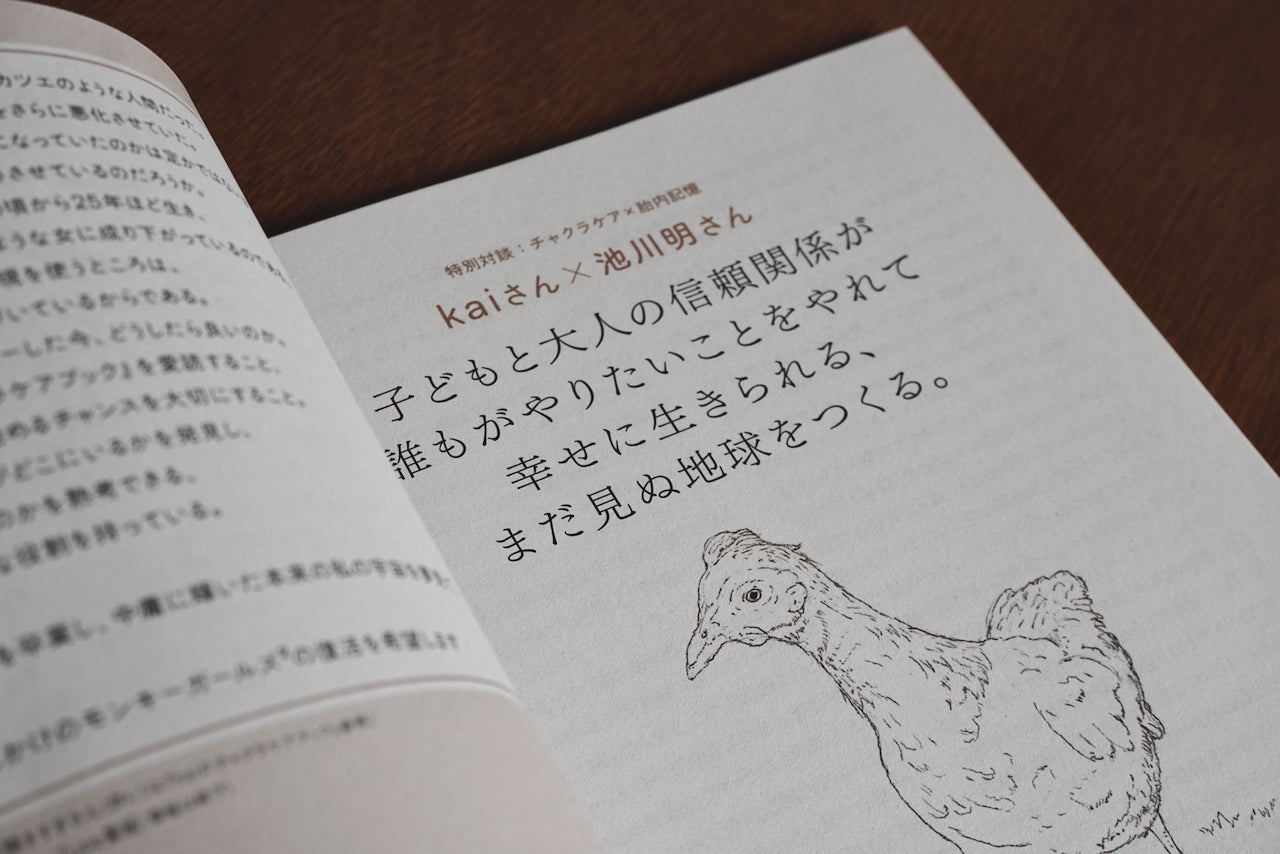 カツエのような人間だった。
さらに悪化させていた。
になっていたのかは定かではない
させているのだろうか。
頃から25年ほど生き、
ような女に成り下がっているのである
を使うところは、
いているからである。
ーした今、どうしたら良いのか。
ラケアブック』を愛読すること、
めるチャンスを大切にすること。
どこにいるかを発見し、
のかを熟考できる、
な役割を持っている。
を卒業し、中庸に輝いた本来の私の宇宙を
かけのモンキーガールズ の復活を希望します
特別対談：チャクラケア×胎内記憶
kaiさん×池川明さん
子どもと大人の信頼関係が
誰もがやりたいことをやれて
幸せに生きられる、
まだ見ぬ地球をつくる。